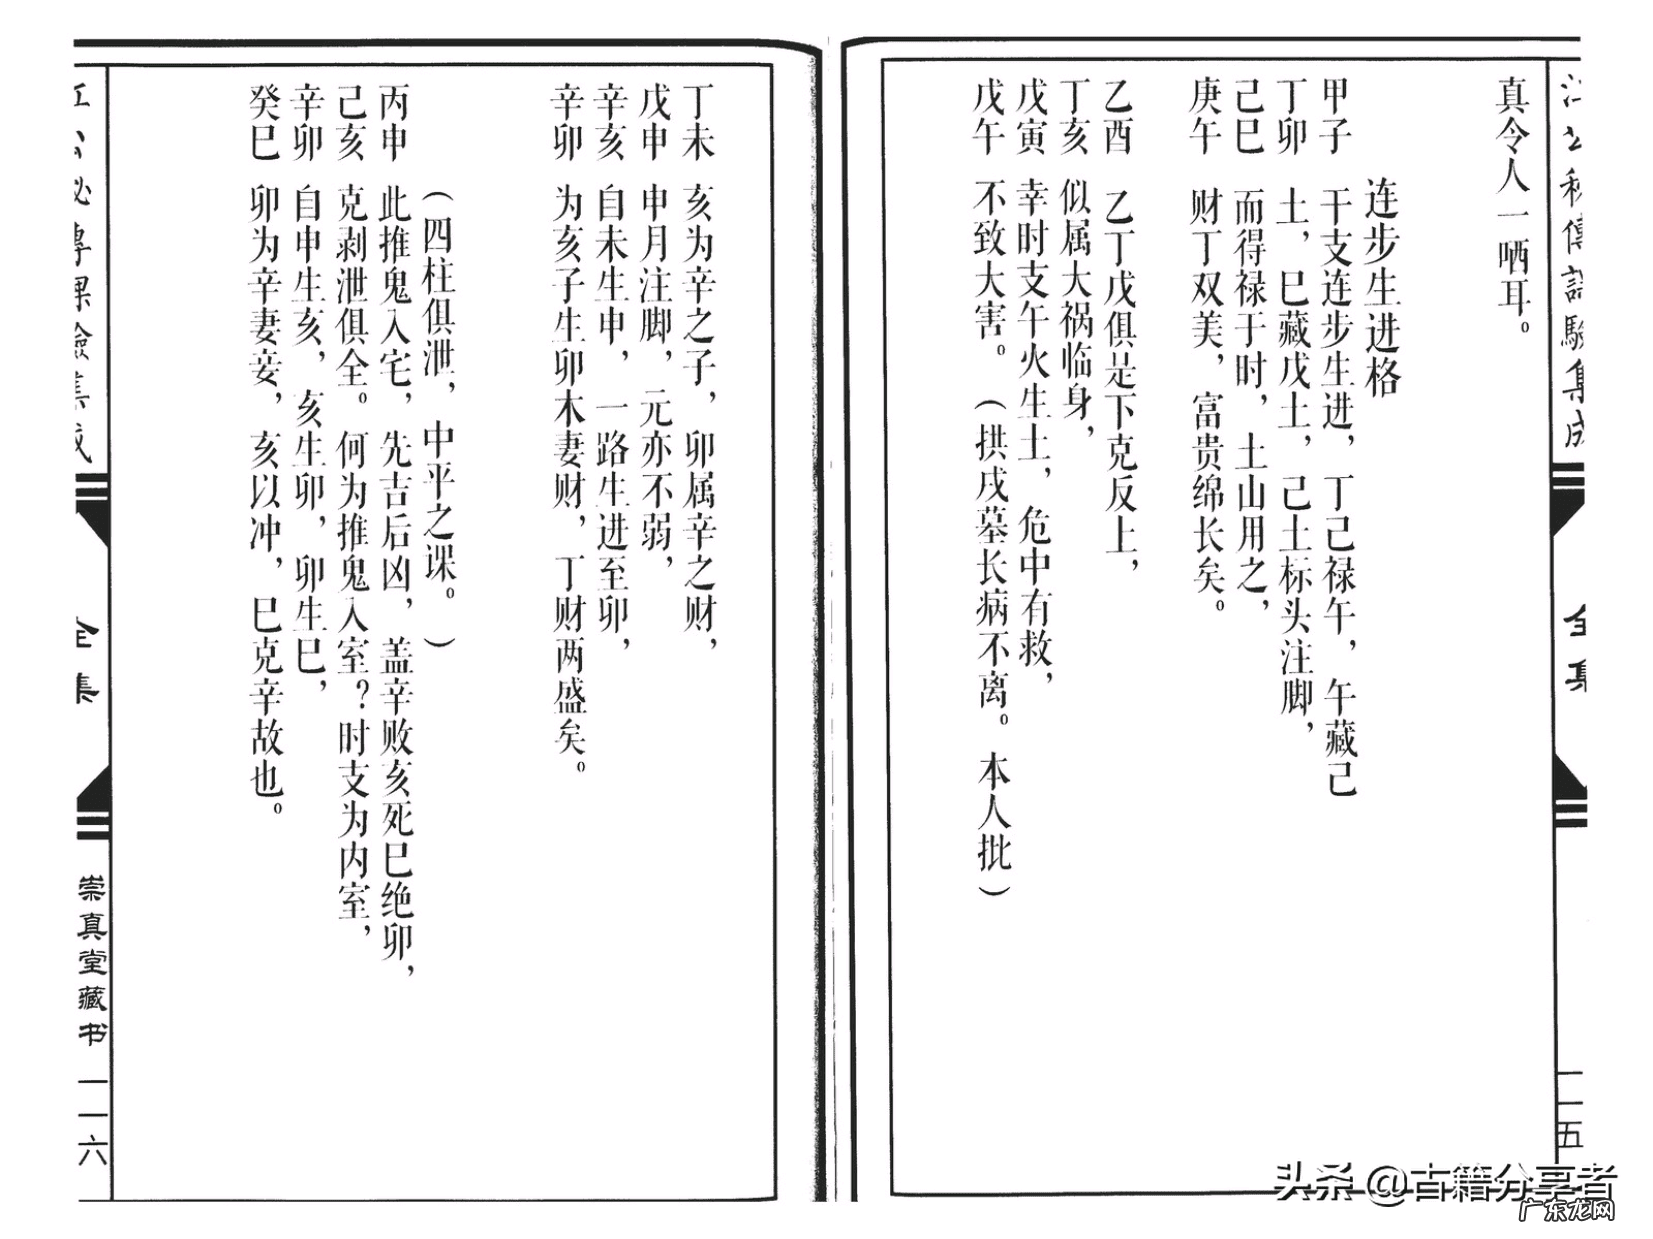 江公秘传课验集成
全集
一一五
真令人一哂耳。
连步生进格
甲子 干支连步生进，丁己禄午，午藏己
丁卯 土，巳藏戊土，己土标头注脚，
己巳 而得禄于时，土山用之，
庚午 财丁双美，富贵绵长矣。
乙酉 乙丁戊俱是下克反上，
丁亥 似属大祸临身，
戊寅 幸时支午火生土，危中有救，
戊午 不致大害。（拱戌墓长病不离。本人批）
丁未 亥为辛之子，卯属辛之财，
戊申 申月注脚，元亦不弱，
辛亥 自未生申，一路生进至卯，
辛卯 为亥子生卯木妻财，丁财两盛矣。
（四柱俱泄，中平之课。）
丙申 此推鬼入宅，先吉后凶，盖辛败亥死巳绝卯，
己亥 克剥泄俱全。何为推鬼入室？时支为内室，
辛卯 自申生亥，亥生卯，卯生巳，
癸巳 卯为辛妻妾，亥以冲，巳克辛故也。
江公秘传课验集成
全集
崇真堂藏书
一一六
头条 @古籍分享者
广东龙网